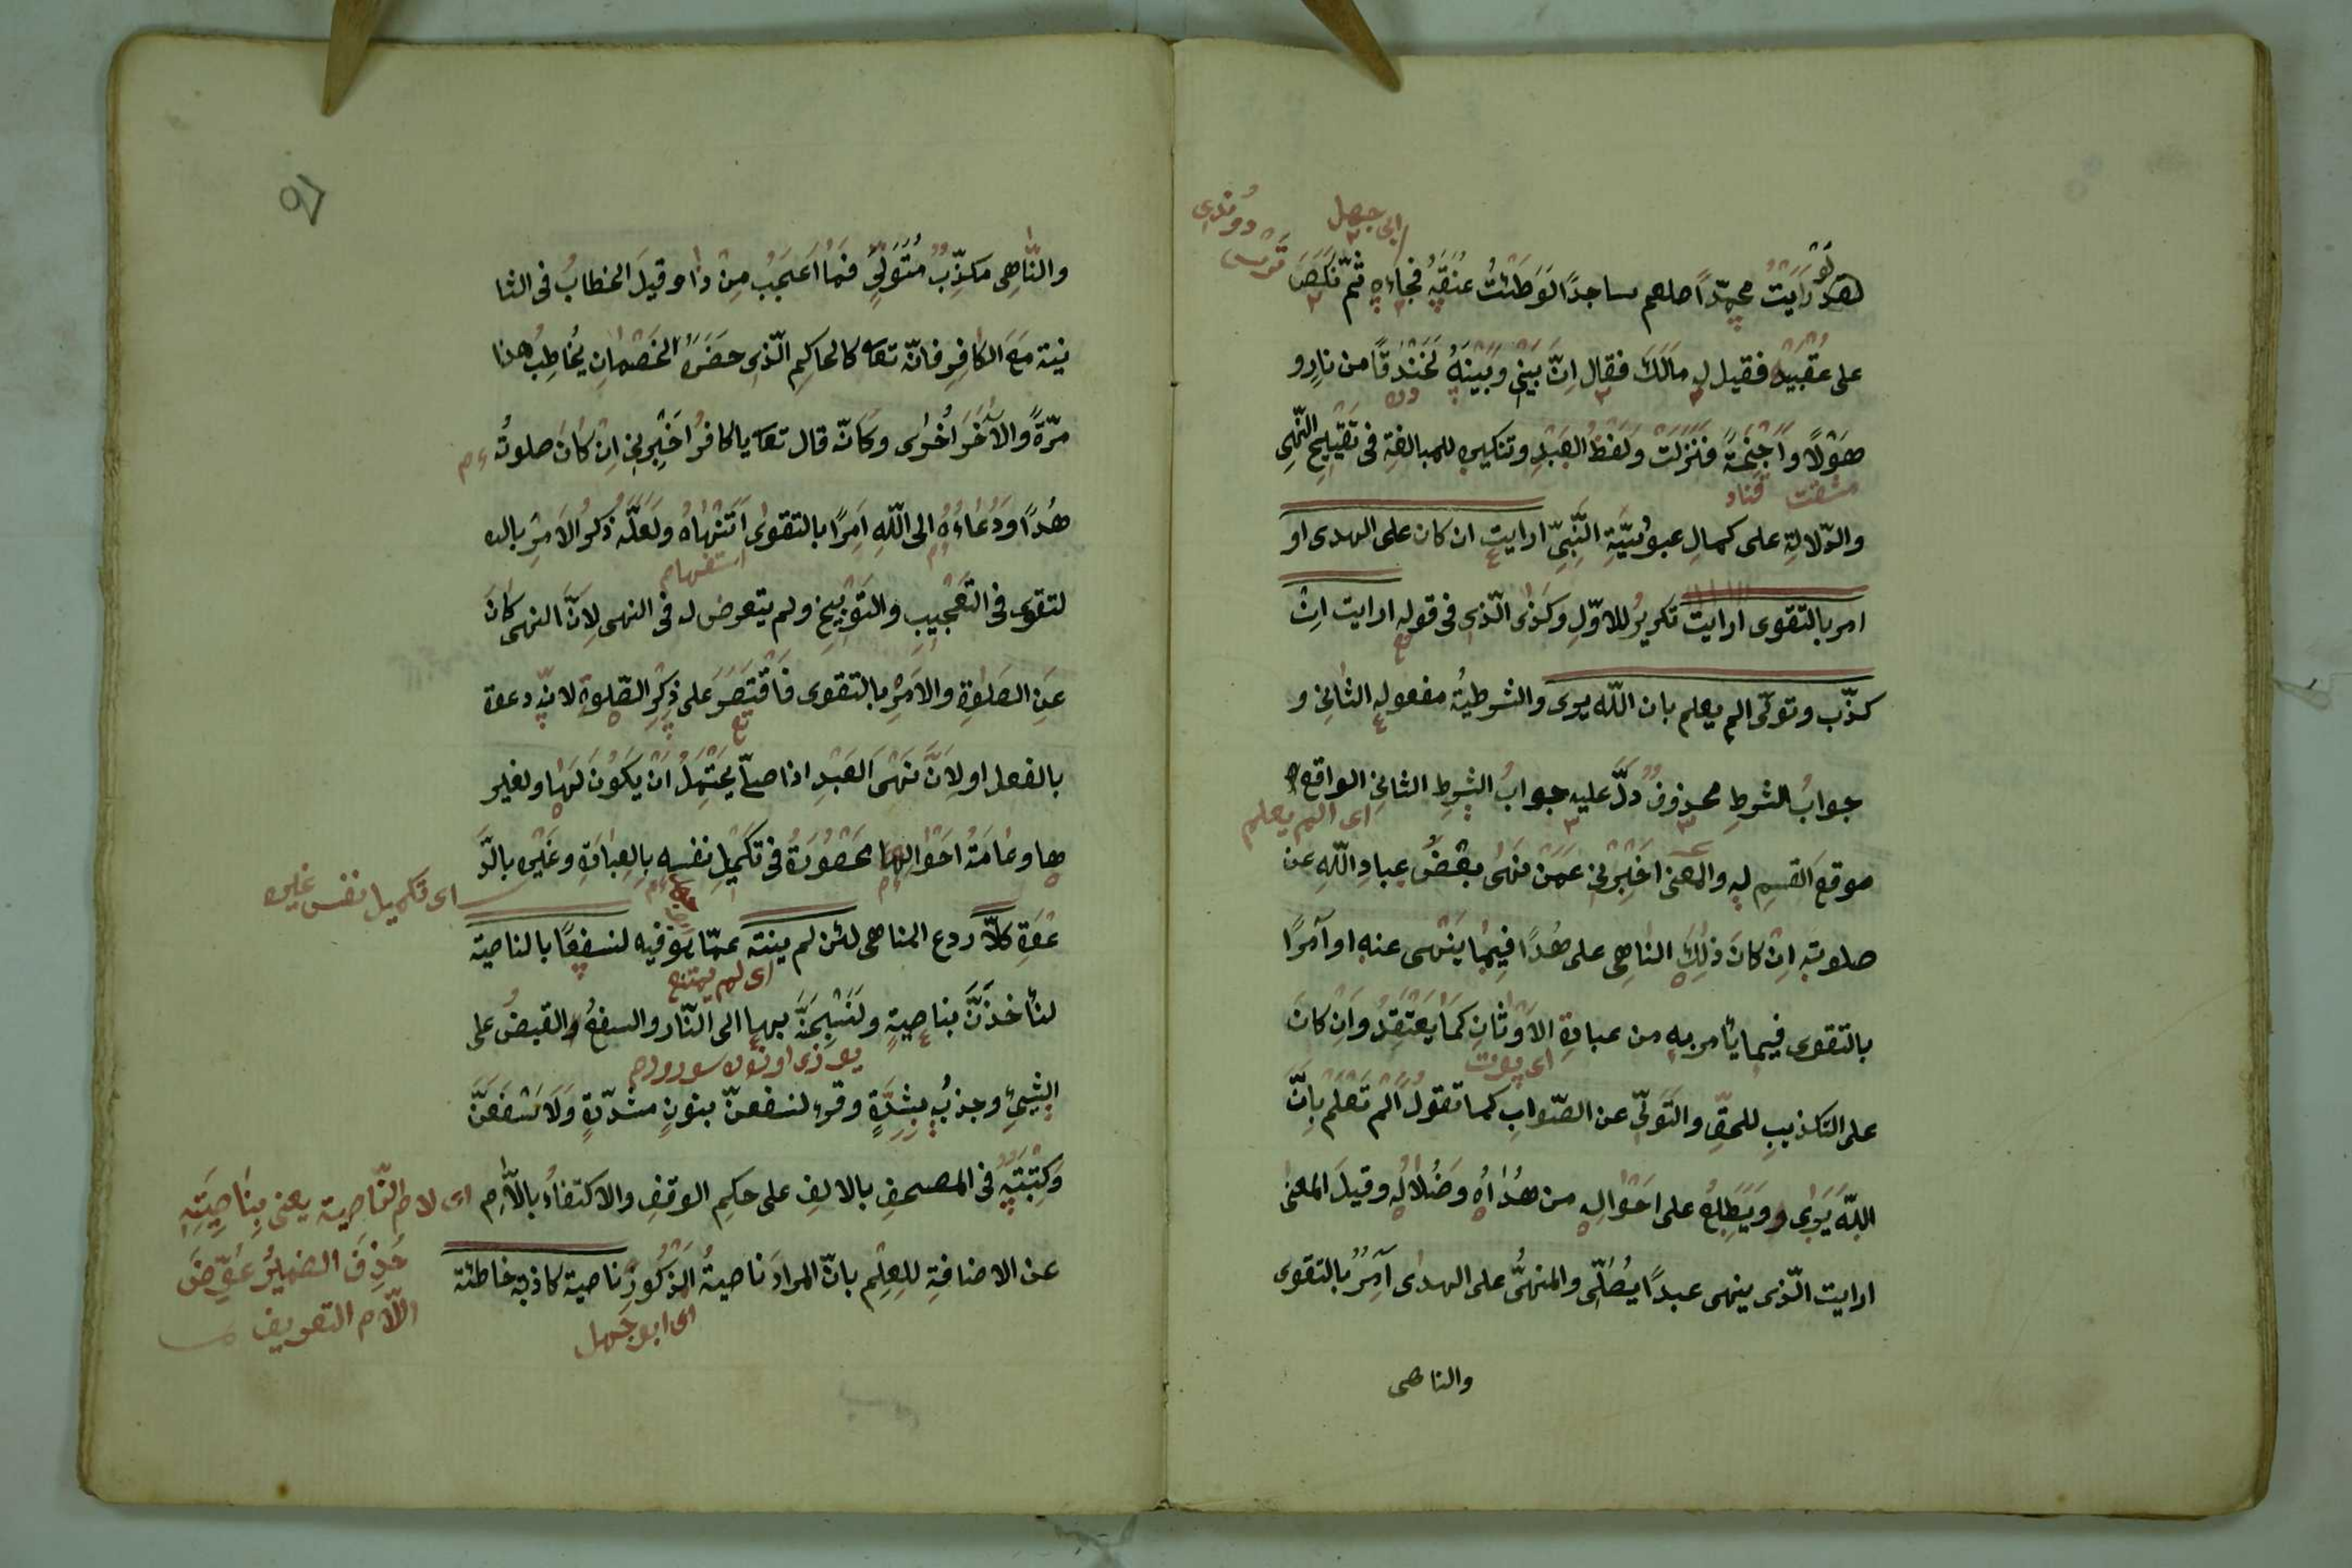 لو رَاَيْتُ محمّدًا صلعم ساجدًا لَوَطَئْتُ عُنُقَهُ فجاءه ثمّ نَكَصَ
على عَقِبَيْهِ فقيل له مالك فقال اِنَّ بَيْنِي وَبَيْنَهُ لَخَنْدَقًا من نارٍ و
هَوْلًا وَاَجْنِحَةً فَنَزَلَتْ ولفظُ العبدِ وتنكيره للمبالغةِ في تَقْبِيحِ النَّهْيِ
والدّلالةِ على كمالِ عبوديّةِ النَّبِيِّ ارايت ان كان على الهدى او
امر بالتقوى ارايت تكريرٌ للاوّلِ وكذى الّذى فى قوله ارايت اِنْ
كذّب وتولّى الم يعلم بان اللّه يرى والشرطيةُ مفعوله الثانِى و
جوابُ الشرطِ محذوفٌ دلَّ عليه جوابُ الشرطِ الثانِى الواقع
موقعَ القسيم له والمعنى اَخْبِرْنِى عَمَّنْ يَنْهَى بعضَ عبادِ اللّهِ عن
صلوته اِنْ كانَ ذٰلِكَ النّاهِى على هُدًا فيما ينهى عنه او آمرًا
بالتقوى فيما يأمر به من عبادةِ الاَوْثانِ كَمَا يَعْتَقِدُ وَاِنْ كانَ
على التكذيبِ للحقِّ والتَولِّى عن الصّوابِ كما تقولُ اَلَمْ تَعْلَمْ بِاَنَّ
اللّه يَرٰى وَيَطَّلِعُ على اَحْوالِه من هُدٰاهُ وضَلالِه وقيلَ المعنى
ارايت الّذى ينهى عبدًا يُصَلِّى والمنهىُّ على الهدى آمِرٌ بالتقوى
والناهى
والنّاهِى مكذّبٌ مُتَوَلٍّ فَمَا اَعْجَبُ مِنْ ذا وقيلَ الخطابُ فى الثا
نيةِ مَعَ الكافِرِ فانّه تعا كالحاكمِ الّذى حَضَرَهُ الخَصْمانِ يُخاطِبُ هذا
مرّةً والآخَرَ اُخْرٰى وكانّه قال تعا يا كافرُ اَخْبِرْنى اِنْ كانَ صلوتُه
هُدًا وَدُعاءُهُ الى اللّهِ اَمْرًا بالتقوى اَتَنْهَاهُ ولَعَلَّه ذكرُ الاَمرِ بال
لتقوى فى التَعْجِيبِ والتَوْبِيخِ ولم يتعرض له فى النهى لِاَنَّ النهى كانَ
عَنِ الصَلٰوةِ والاَمْرِ بالتقوى فَاقْتَصَرَ على ذِكْرِ الصّلوةِ لانّه دعوة
بالفعل او لاَنَّ نَهْىَ العَبْدِ اذا صلّى يَحْتَمِلُ اَنْ يَكُونَ لَهَا ولغير
ها وعامّةُ اَحْوالِها محصُورَةٌ فى تكميلِ نفسِه بالعبادةِ وغيرِه بالدَّ
عْوَةِ كلّا ردع للناهى لئن لم ينته عمّا هو فيه لنسفعًا بالناصية
لنأخذَنَّ بناصيةٍ ولَنَسْحَبَنَّه بها الى النّار والسفعُ القبضُ على
الشيئِ وجذبُه بشِدَّةٍ وقرء لنسفعنّ بنونٍ مشدّةٍ وَلَاَسْفَعَنَّ
وَكِتْبَتُهُ فى المصحفِ بالالفِ على حكمِ الوقفِ والاكتفاءُ بالّلامِ
عن الاضافةِ للعِلْمِ بانّ المرادَ ناصيةُ المَذْكُورِ ناصية كاذبة خاطئة
ابى جهل
اى الم يعلم
استفهام
اى تكميل نفس غيره
اى لم يمتنع
اى لام النّاصية يعنى بِناصِيَتِهِ
حَذِفَ الضميرُ عَوِّضَ
اللّام التعريف
اى ابو جهل